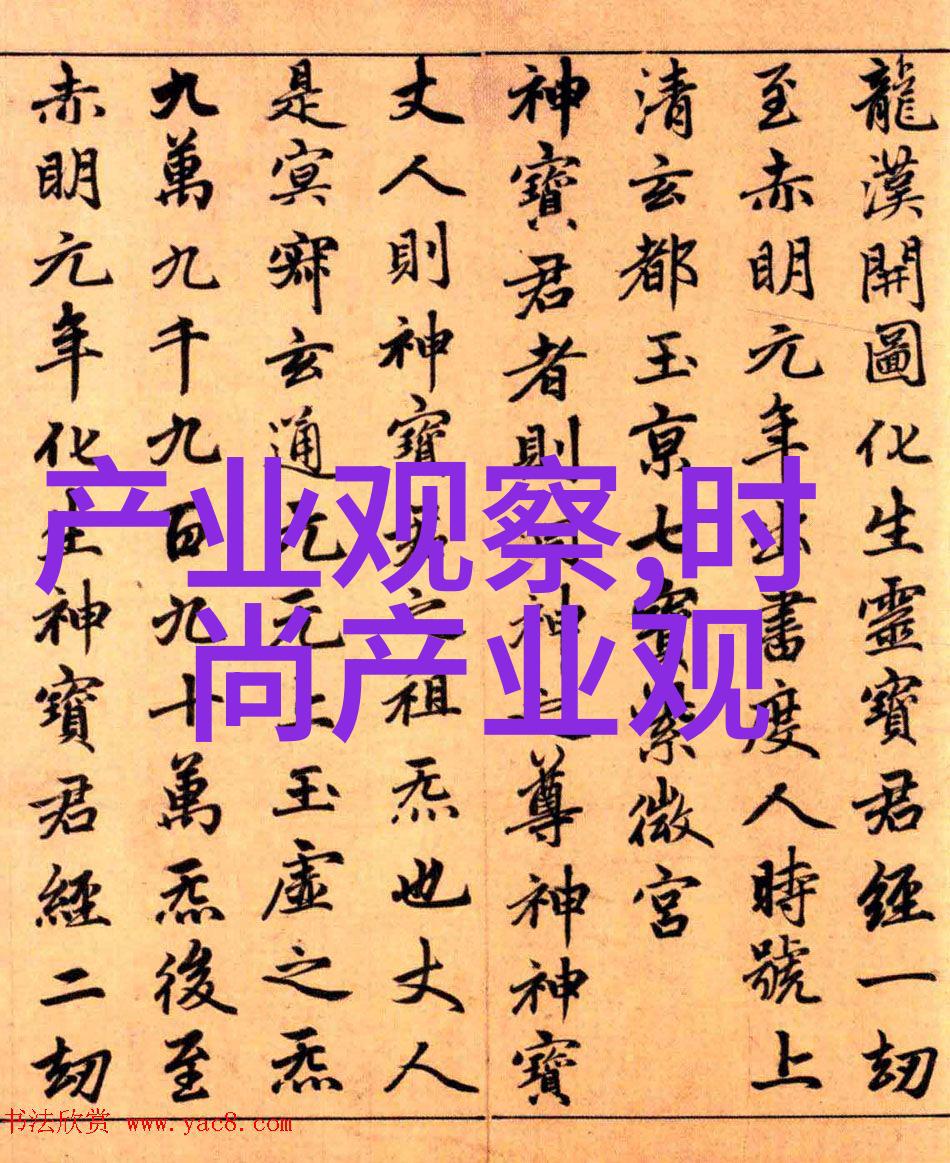 龍漢開圖化生靈寶君經一劫
至赤明元年出書度人時號上
清玄都玉京七寶紫微宮
神寶君者則洞神之尊神神寶
丈人則神寶君之祖炁也丈人
是冥寂玄通元无上玉虛之炁
九萬九千九百九十萬炁後至
赤明元年化生神寶君經二劫
产业观察,时
尚产业观
书法欣赏 www.yac8.com